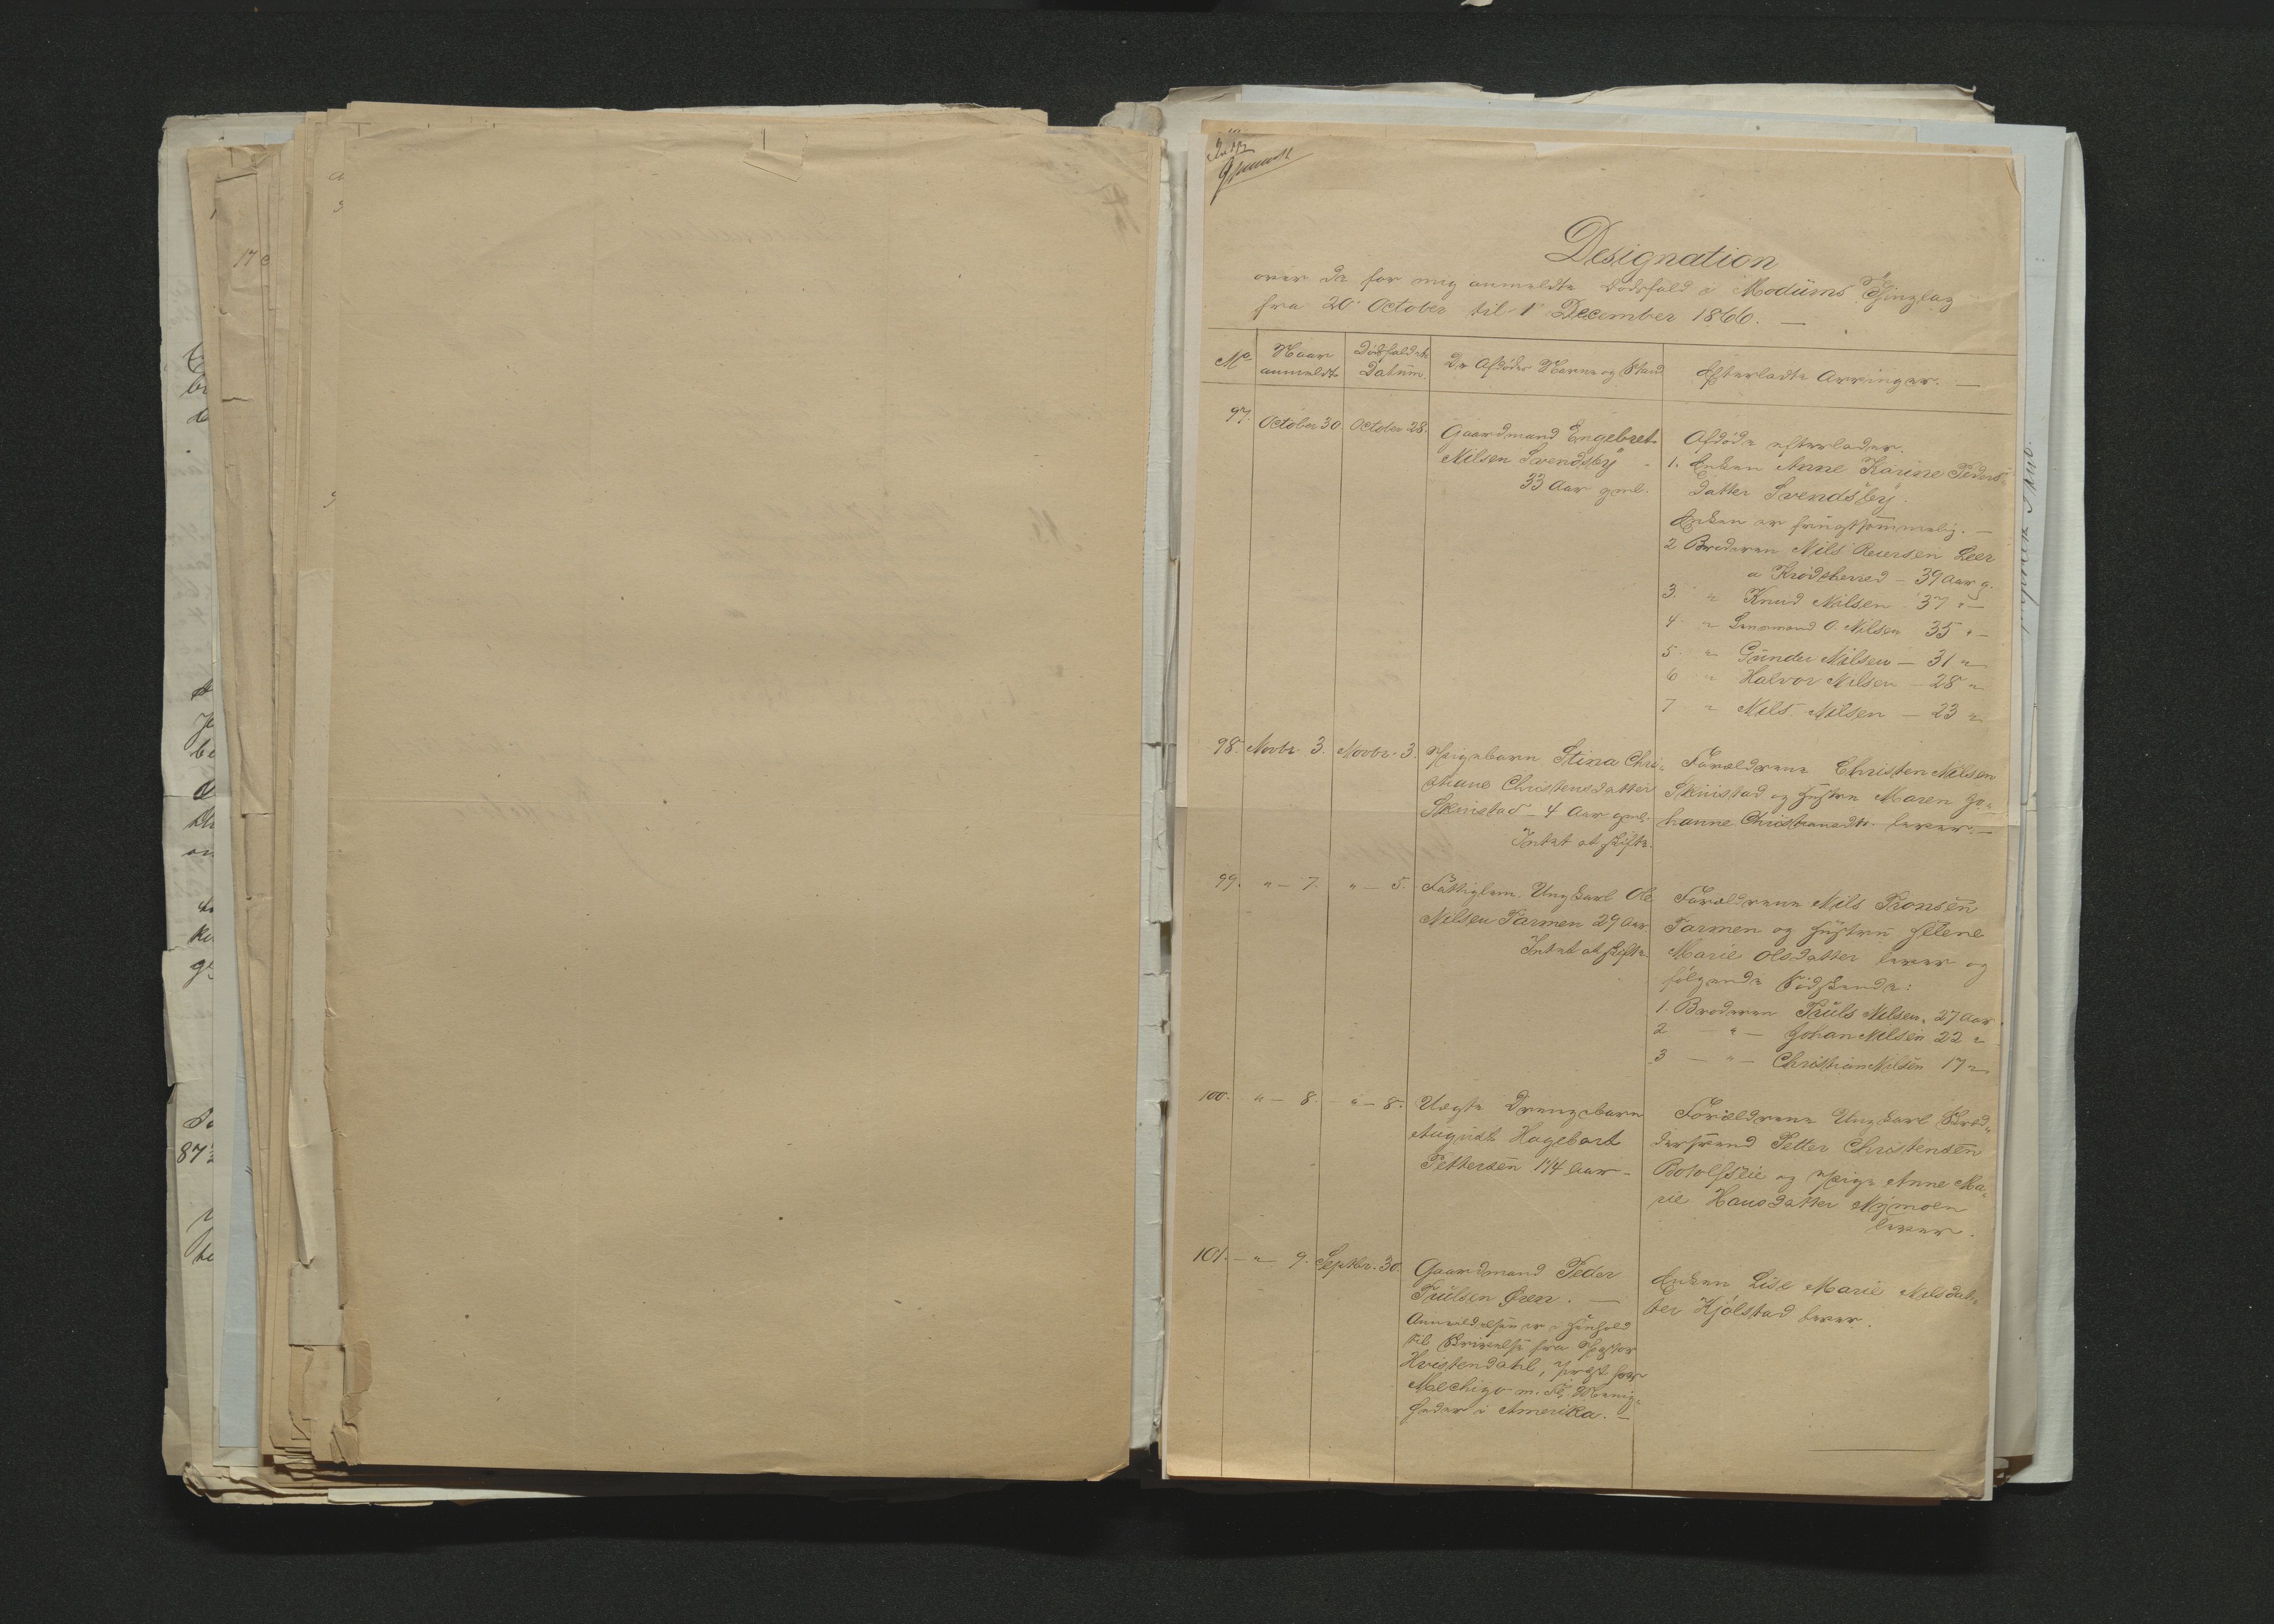 Designation
over de for mig anmeldte Dødsfald i Modums Thinglag
fra 20 October til 1 December 1866. —
No
Naar anmeldt
Dødsfaldets Datum.
De Afdødes Navne og Stand
Efterladte Arvinger. —
97. October 30 October 28.
Gaardmand Engebret
Nilsen Svendsby
33 Aar gml.
Afdøde efterlader.
1. Enken Anne Karine Peders-
datter Svendsby.
Enken er frugtsommelig. —
2 Broderen Nils Reiersen Leer
a Krødsherred — 39 Aar g.
3. " Knud Nilsen 37 " —
4 " Lensmand O. Nilsen 35 " —
5. " Gunder Nilsen — 31 "
6 " Halvor Nilsen — 28 "
7 " Nils Nilsen — 23 "
98. Novbr. 3. Novbr. 3.
Pigebarn Stina Chri-
stiane Christensdatter
Skuistad — 4 Aar gml.
Intet at skifte.
Forældrene Christen Nilsen
Skuistad og Hustru Maren Jo-
hanne Christiansdtr. lever. —
99. " — 7. " — 5.
Fattiglem. Ungkarl Ole
Nilsen Tarmen 29 Aar
Intet at skifte
Forældrene Nils Tronsen
Tarmen og Hustru Helene
Marie Olsdatter lever og
følgende Sødskende:
1. Broderen Truls Nilsen. 27 Aar.
2 — " — Johan Nilsen 22 "
3 — " — Christian Nilsen 17 "
100. " — 8. " — 8.
Uægte Drengebarn
August Hagebart
Pettersen 1 1/4 Aar —
Forældrene Ungkarl Skræd-
dersvend Petter Christensen
Botolfseie og Pige Anne Ma-
rie Hansdatter Nymoen
lever.
101. — " — 9. Septbr. 30.
Gaardmand Peder
Trulsen Øren. —
Anmeldelsen er i Henhold
til Skrivelse fra Pastor
Hvistendahl, Præst for
Mechigo m. Fl. Menig-
heder i Amerika. —
Enken Lise Marie Nilsdat-
ter Kjølstad lever.